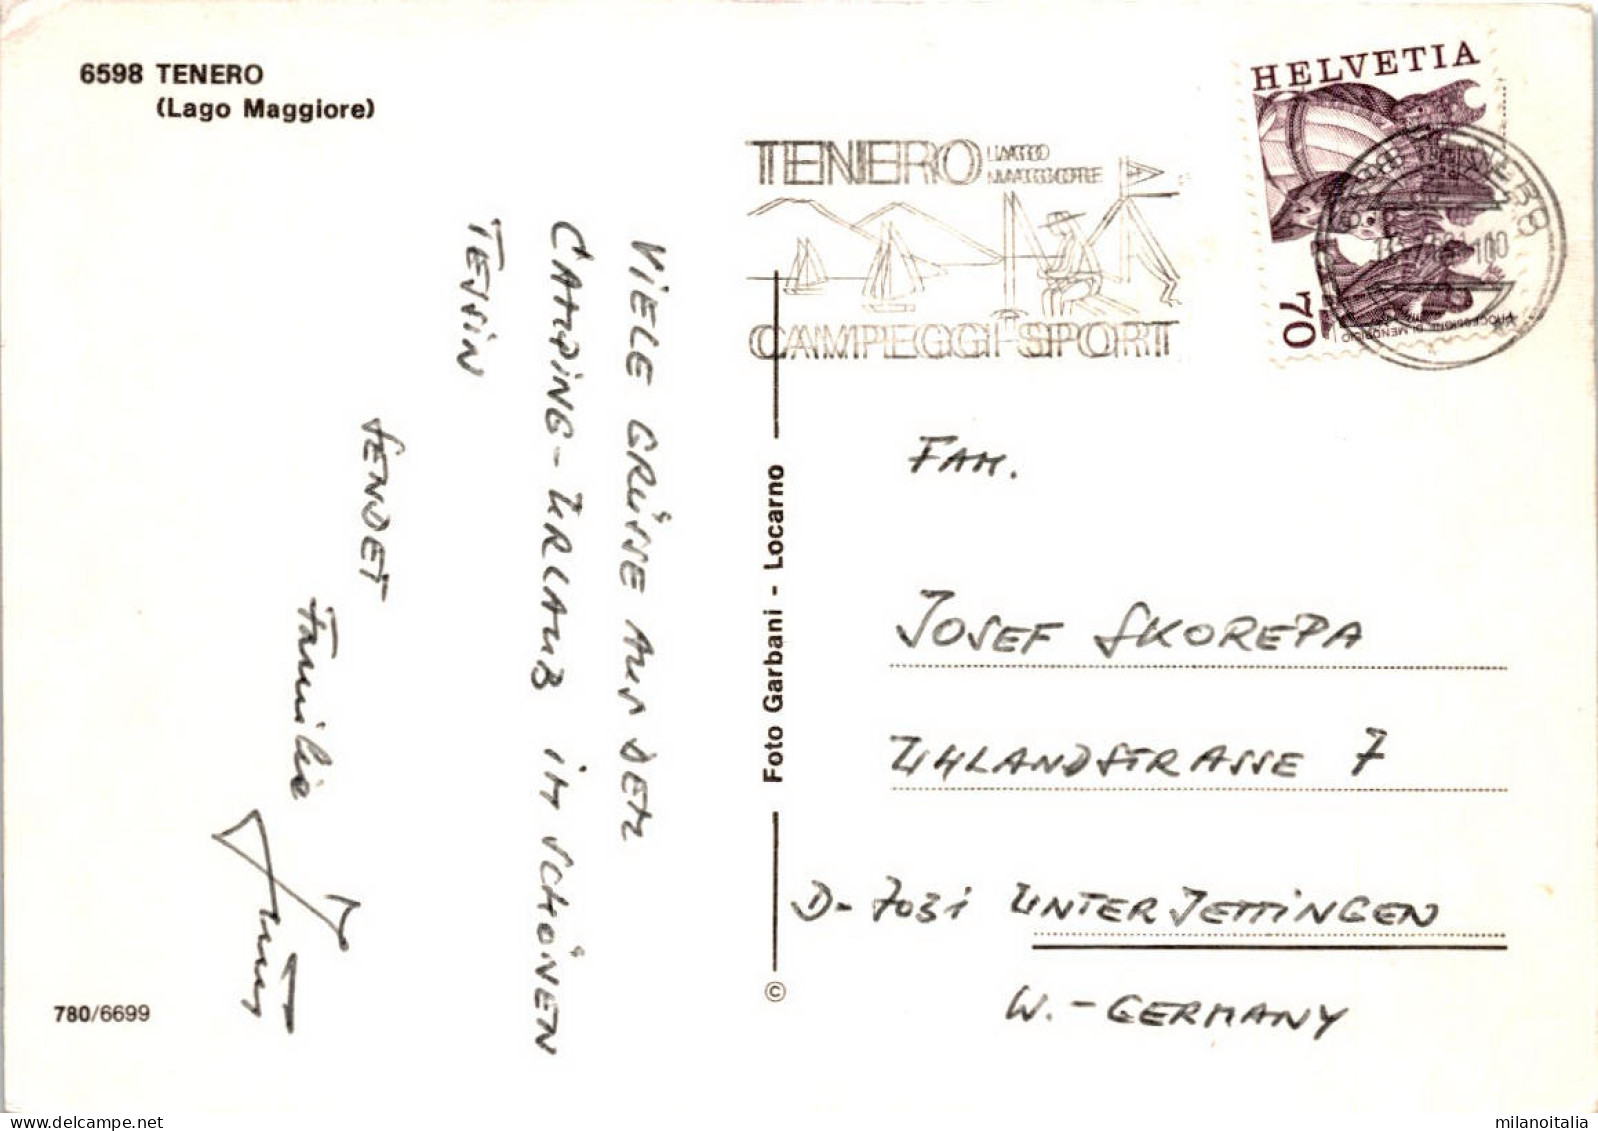 6598 TENERO
(Lago Maggiore)
TENERO LAGO
MAGGIORE
CAMPEGGI SPORT
HELVETIA
70
PROCESSIONE DI MENDRISIO
6598 TENERO
VIELE GRÜSSE AUS DEM
CAMPING-URLAUB IM SCHÖNEN
TESSIN
SENDET
Familie
Foto Garbani - Locarno
©
FAM.
JOSEF SKOREPA
UHLANDSTRASSE 7
D-7031 UNTERJETTINGEN
W.-GERMANY
780/6699
milanoitalia